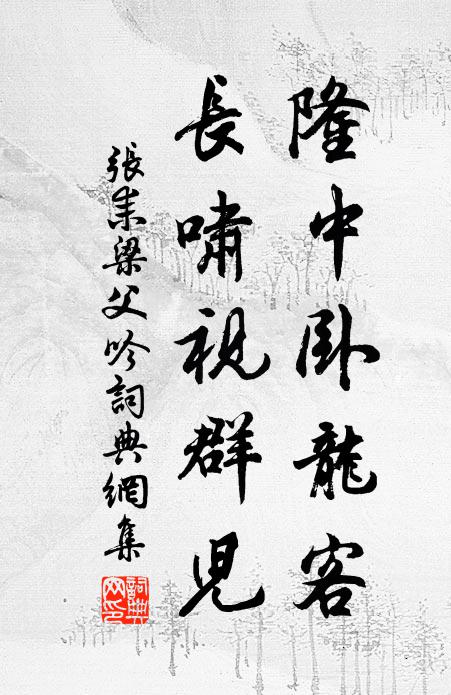 隆中卧龍客
長嘯視群兒
張耒梁父吟詞典網集